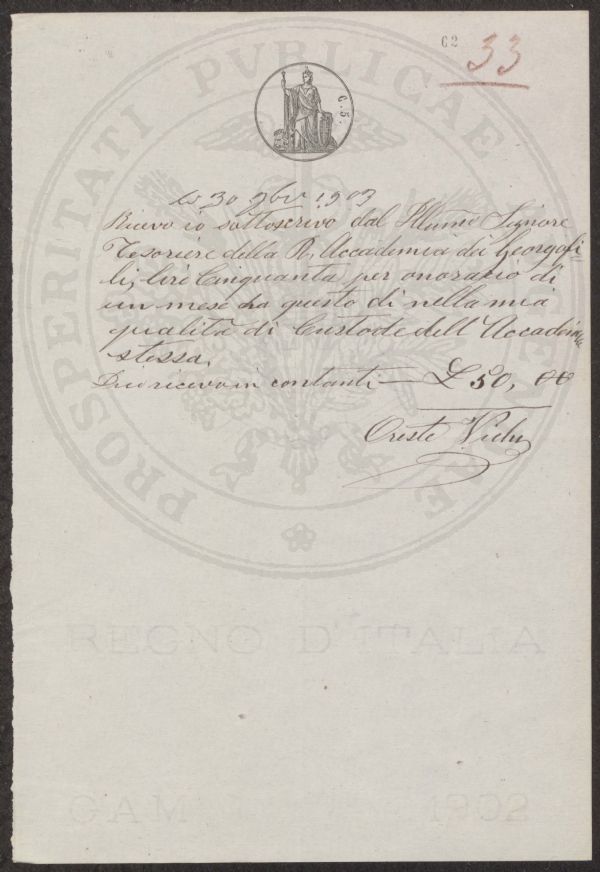 62
33
C. 5.
PROSPERITATI PVBLICAE AVGENDAE
Lì 30 9bre 1903
Ricevo io sottoscrivo dal Illumo Signore
Tesoriere della R. Accademia dei Georgofi=
li, liri Cinquanta per onorario di
un mese da questo di nella mia
qualità di Custode dell'Accademia
stessa.
Dico ricevo in contanti — £ 50, 00
Oreste
REGNO D'ITALIA
CAM 1902